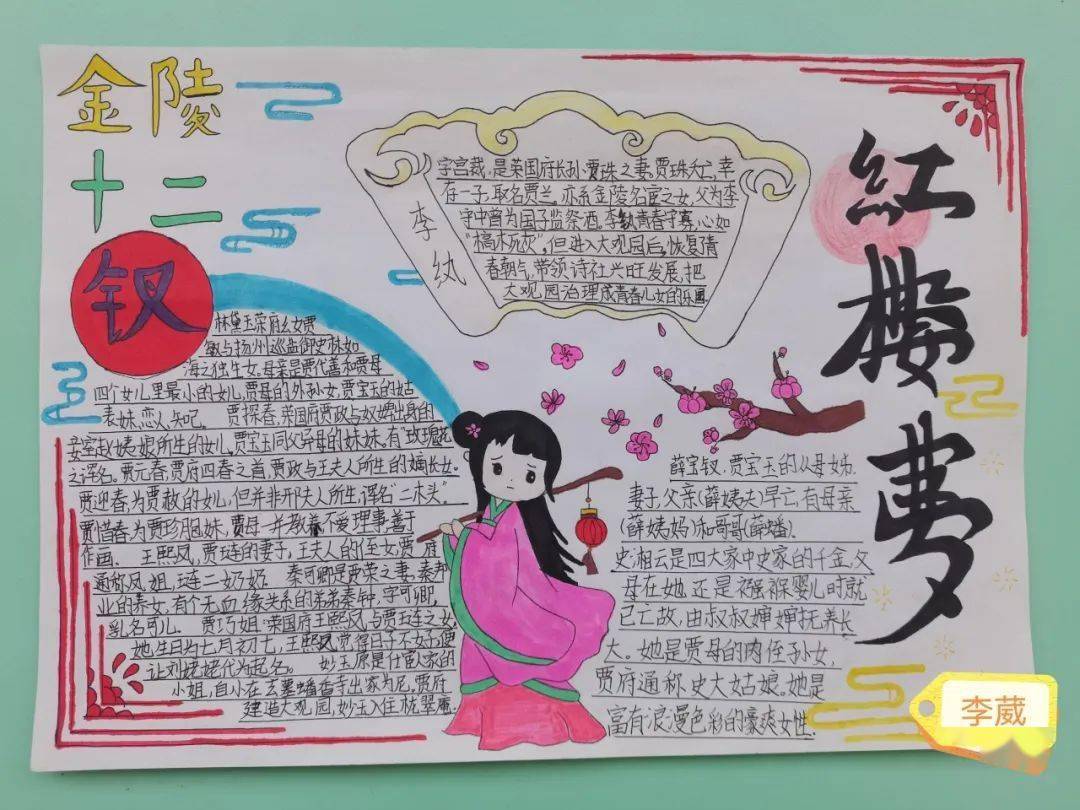 金陵
十二
钗
紅樓夢
李纨
字宫裁,是荣国府长孙贾珠之妻。贾珠夭亡,幸
存一子,取名贾兰,亦系金陵名宦之女,父为李
守中曾为国子监祭酒。李纨青春守寡,心如
"槁木死灰",但进入大观园后,恢复青
春朝气,带领诗社兴旺发展,把
大观园治理成青春儿女的乐园
林黛玉荣府幺女贾
敏与扬州巡盐御史林如
海之独生女,母亲是贾代善和贾母
四个女儿里最小的女儿,贾母的外孙女,贾宝玉的姑
表妹,恋人,知己。 贾探春,荣国府贾政与奴婢出身的
妾室赵姨娘所生的女儿,贾宝玉同父异母的妹妹,有"玫瑰花"
之诨名。贾元春,贾府四春之首,贾政与王夫人所生的嫡长女。
贾迎春为贾赦的女儿,但并非邢夫人所生,诨名"二木头"。
贾惜春为贾珍胞妹,贾母一并教养不爱理事,善于
作画。 王熙凤,贾琏的妻子,王夫人的侄女,贾府
通称凤姐,琏二奶奶 秦可卿是贾蓉之妻,秦邦
业的养女,有个无血缘关系的弟弟秦钟,字可卿,
乳名可儿。 贾巧姐,荣国府王熙凤与贾琏之女
她,生日为七月初七,王熙凤觉得日子不好便
让刘姥姥代为起名。 妙玉原是仕宦家的
小姐,自小在玄墓蟠香寺出家为尼。贾府
建造大观园,妙玉入住栊翠庵。
薛宝钗,贾宝玉的从母姊
妻子,父亲(薛姨夫)早亡,有母亲
(薛姨妈)和哥哥(薛蟠).
史湘云是四大家中史家的千金,父
母在她还是襁褓婴儿时就
已亡故,由叔叔婶婶抚养长
大。她是贾母的内侄孙女,
贾府通称史大姑娘。她是
富有浪漫色彩的豪爽女性.
李葳